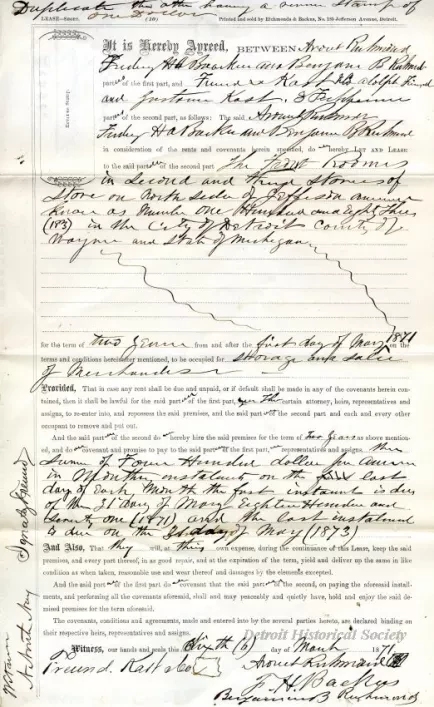 Duplicate the other having a revenue Stamp of
one Dollar
LEASE—SHORT. (20) Printed and sold by Richmonds & Backus, No. 183 Jefferson Avenue, Detroit.
It is Hereby Agreed, BETWEEN Arout Richmond
H Backus and Benjamin B Richmond
part of the first part, and Freund Kast Adolph Freund
and Kast
part of the second part, as follows: The said Arout Richmond
H A Backus and Benjamin B Richmond
in consideration of the rents and covenants herein specified, do hereby LET AND LEASE
to the said part of the second part The Front Rooms
in Second and Third Stories of
Store on North side of Jefferson avenue
Known as Number One Hundred and Eighty Three
(183) in the City of Detroit County of
Wayne and State of Michigan
for the term of two years from and after the first day of May 1871 on the
terms and conditions hereinafter mentioned, to be occupied for Storage and sale
of Merchandise
Provided, That in case any rent shall be due and unpaid, or if default shall be made in any of the covenants herein con-
tained, then it shall be lawful for the said part of the first part, certain attorney, heirs, representatives and
assigns, to re-enter into, and repossess the said premises, and the said part of the second part and each and every other
occupant to remove and put out.
And the said part of the second do hereby hire the said premises for the term of Two Years as above mention-
ed, and do covenant and promise to pay to the said part of the first part, representatives and assigns, the
Sum of Four Hundred dollars per annum
in Monthly instalments on the last
day of Each Month the first instalment is due
on the 31 day of May Eighteen Hundred and
Seventy one (1871) and the last instalment
is due on the day of May (1873)
And Also, That they will, at their own expense, during the continuance of this Lease, keep the said
premises, and every part thereof, in as good repair, and at the expiration of the term, yield and deliver up the same in like
condition as when taken, reasonable use and wear thereof and damages by the elements excepted.
And the said part of the first part do covenant that the said part of the second, on paying the aforesaid install-
ments, and performing all the covenants aforesaid, shall and may peaceably and quietly have, hold and enjoy the said de-
mised premises for the term aforesaid.
The covenants, conditions and agreements, made and entered into by the several parties hereto, are declared binding on
their respective heirs, representatives and assigns.
Detroit Historical Society
Witness, our hands and seals this Sixth (6) day of March 1871
Freund Kast & Co Arout Richmond
H. Backus
Benjamin B Richmond
Witness
Ignatz Freund